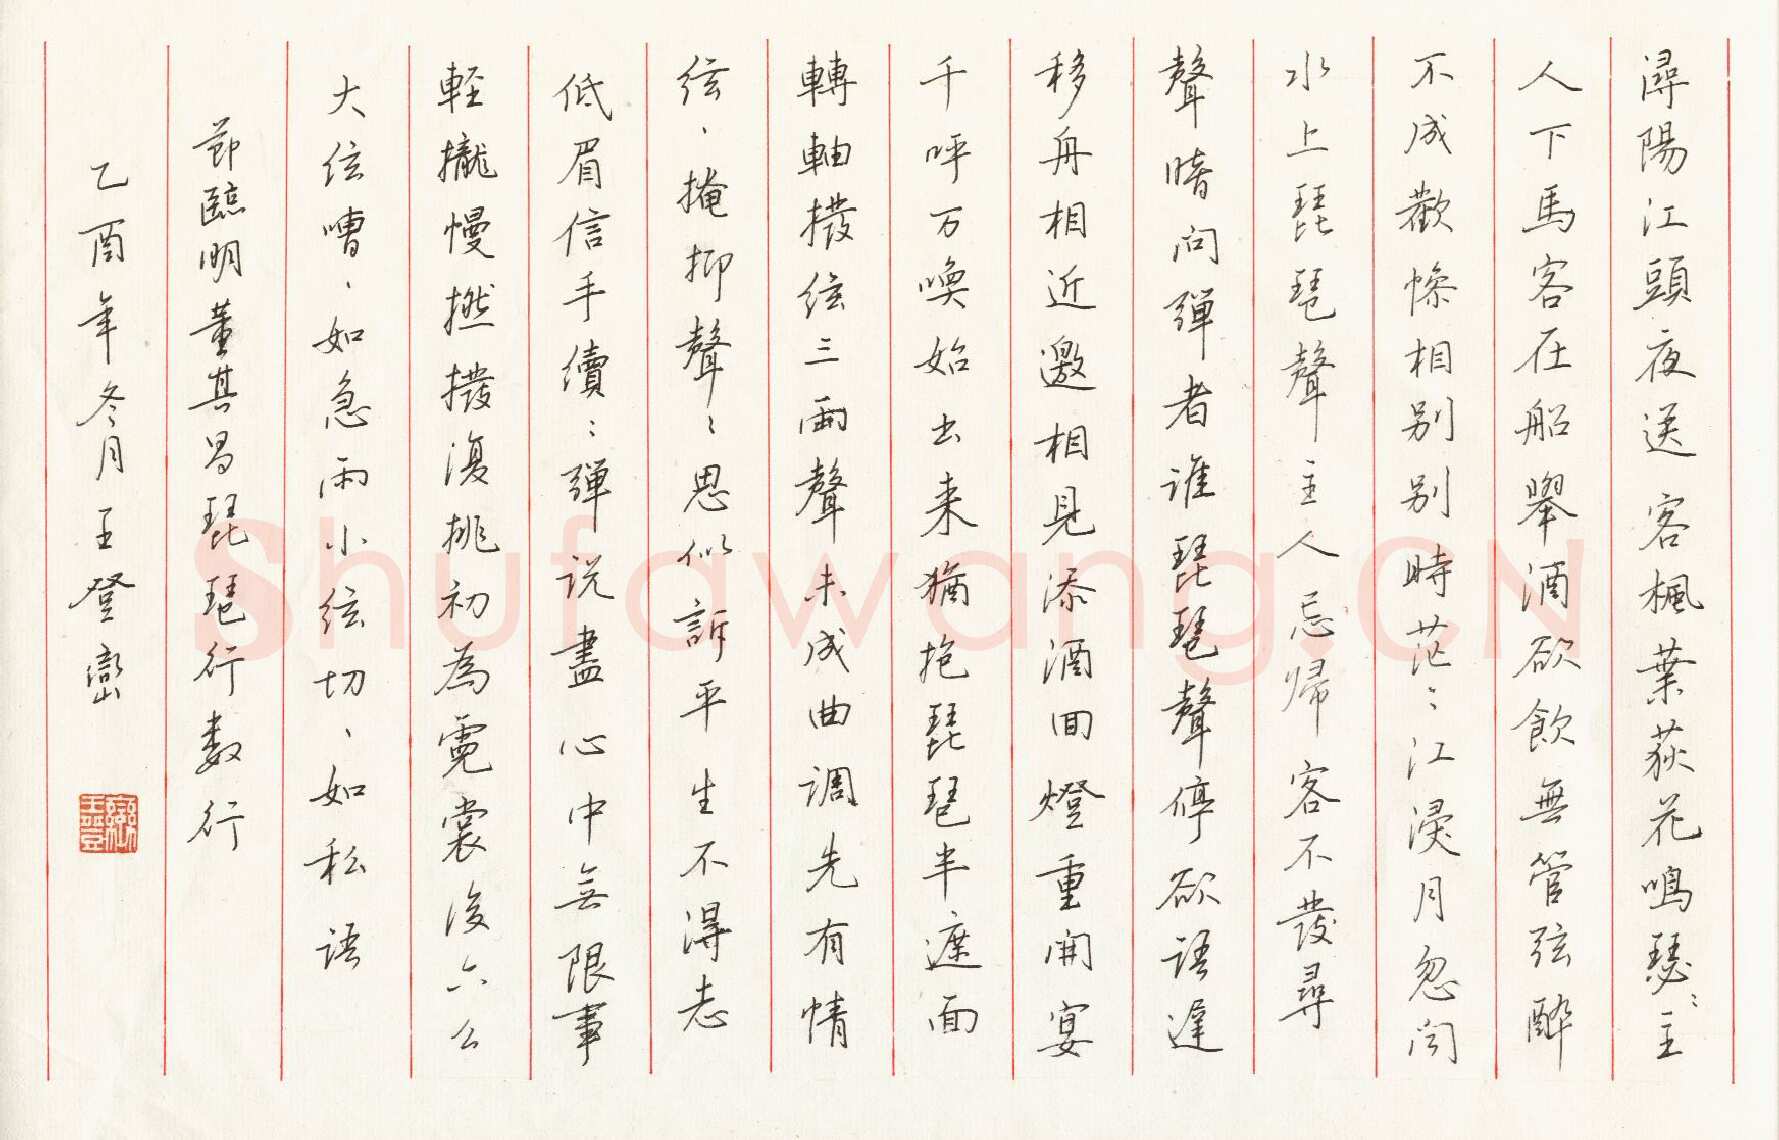 潯陽江頭夜送客楓葉荻花鳴瑟〻主
人下馬客在船舉酒欲飲無管弦醉
不成歡慘相別別時茫〻江浸月忽聞
水上琵琶聲主人忘歸客不發尋
聲暗问彈者谁琵琶聲停欲语遅
移舟相近邀相見添酒回燈重開宴
千呼万喚始出来猶抱琵琶半遮面
轉軸撥弦三兩聲未成曲调先有情
弦、掩抑聲〻思似訴平生不得志
低眉信手續〻彈说盡心中無限事
輕攏慢撚撥復挑初為霓裳後六么
大弦嘈、如急雨小弦切、如私语
節臨明董其昌琵琶行數行
乙酉年冬月王登巒
王登巒
Shufawang.CN